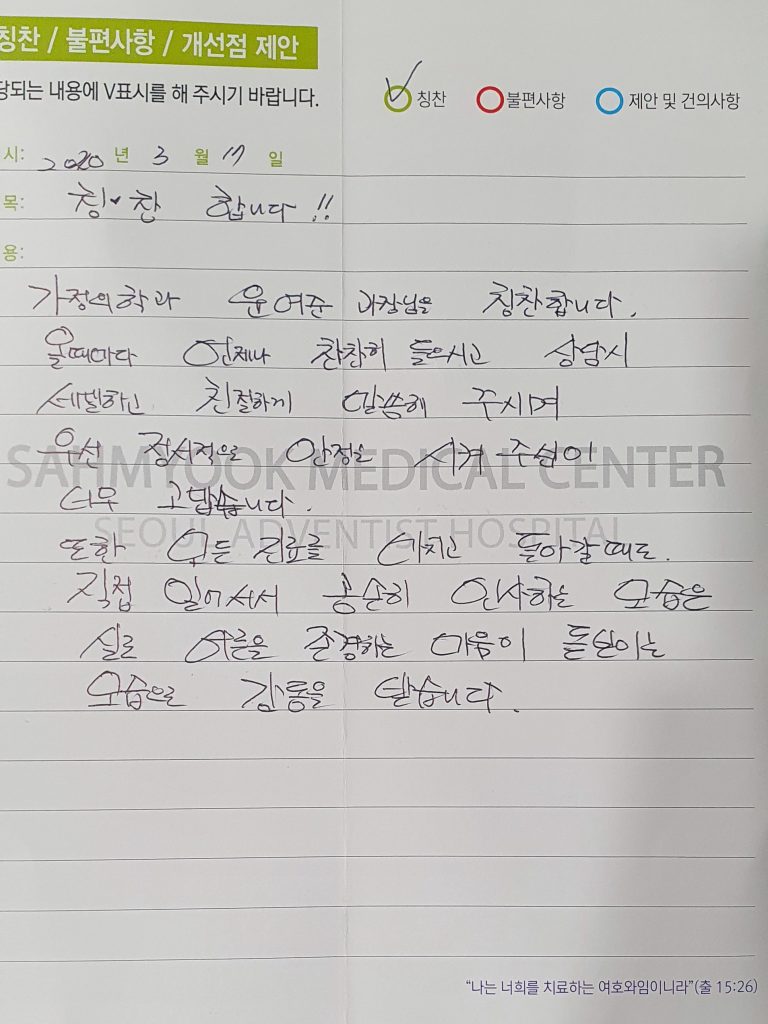 칭찬 / 불편사항 / 개선점 제안
당되는 내용에 V표시를 해 주시기 바랍니다.
칭찬 불편사항 제안 및 건의사항
시: 2020 년 3 월 17 일
목: 칭♥찬 합니다!!
용:
가정의학과 윤여준 과장님을 칭찬합니다.
올때마다 언제나 찬찬히 들으시고 상담시
세밀하고 친절하게 말씀해 주시며
우선 정서적으로 안정을 시켜 주심이
SAHMYOOK MEDICAL CENTER
너무 고맙습니다.
SEOUL ADVENTIST HOSPITAL
또한 모든 진료를 마치고 돌아갈때도.
직접 일어서서 공손히 인사하는 모습은
실로 어른을 존경하는 마음이 돋보이는
모습으로 감동을 받습니다.
“나는 너희를 치료하는 여호와임이니라”(출 15:26)